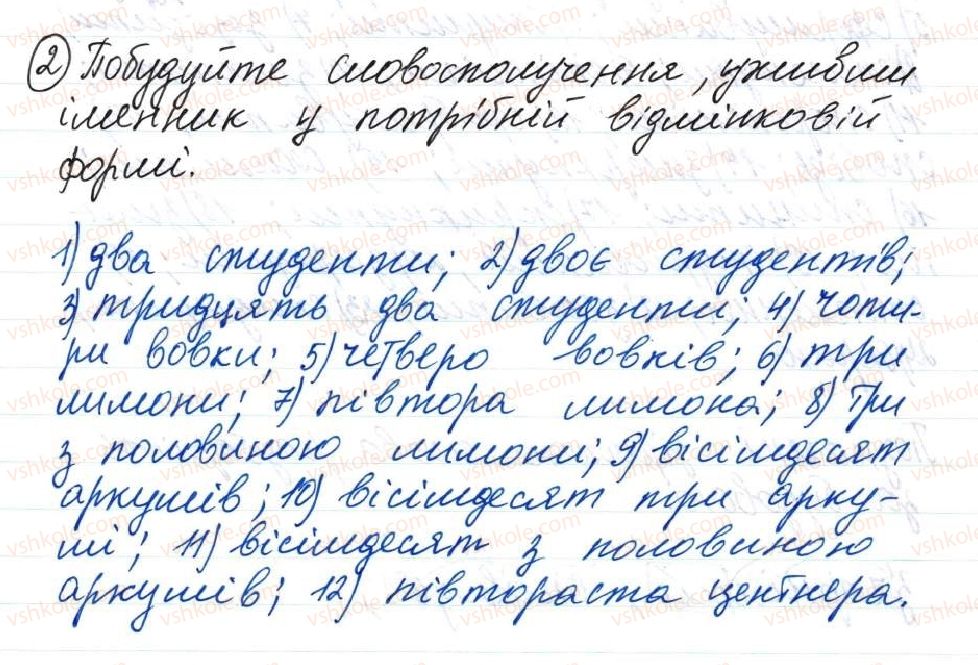 ② Побудуйте словосполучення, уживши
іменник у потрібній відмінковій
формі.
1) два студенти; 2) двоє студентів;
3) тридцять два студенти; 4) чоти-
ри вовки; 5) четверо вовків; 6) три
лимони; 7) півтора лимона; 8) три
з половиною лимони; 9) вісімдесят
аркушів; 10) вісімдесят три арку-
ші; 11) вісімдесят з половиною
аркушів; 12) півтораста центнера.